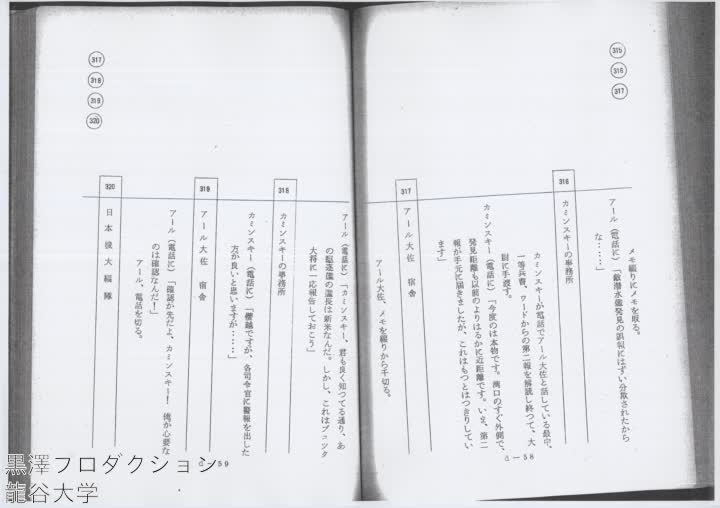 315
316
317
メモ綴りにメモを取る。
アール(電話に)「敵潜水艦発見の誤報にはずい分欺されたから
な‥‥‥」
316
カミンスキーの事務所
カミンスキーが電話でアール大佐と話している最中、
一等兵曹、ワードからの第二報を解読し終つて、大
尉に手渡す。
カミンスキー(電話に)「今度のは本物です。湾口のすぐ外側で、
発見距離も以前のよりはるかに近距離です。いま、第二
報が手元に届きましたが、これはもつとはつきりしてい
ます」
317
アール大佐 宿舎
アール大佐、メモを綴りから千切る。
d—58
317
318
319
320
アール(電話に)「カミンスキー、君も良く知つてる通り、あ
の駆逐艦の艦長は新米なんだ。しかし、これはブロック
大将に一応報告しておこう」
318
カミンスキーの事務所
カミンスキー(電話に)「僭越ですが、各司令官に警報を出した
方が良いと思いますが‥‥‥」
319
アール大佐 宿舎
アール(電話に)「確認が先だよ、カミンスキー! 俺が必要な
のは確認なんだ!」
アール、電話を切る。
320
日本機大編隊
d—59
黒澤プロダクション
龍谷大学